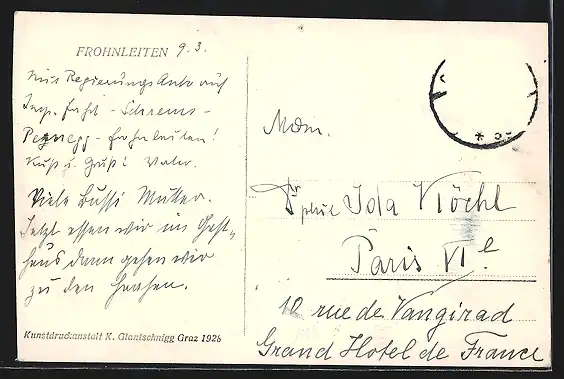 FROHNLEITEN 9.3.
Aus Regierungs Auto auf
Insp. fahrt - Schrems -
Pernegg - Frohnleiten!
Kuß u. Gruß! Vater.
Viele Bussi Mutter.
Jetzt essen wir im Gast„
haus dann gehen wir
zu den
Kunstdruckanstalt K. Glantschnigg Graz 1926
Mdm.
Dr phil Ida Köchl
Paris VI e.
10 rue de Vaugirad
Grand Hotel de France